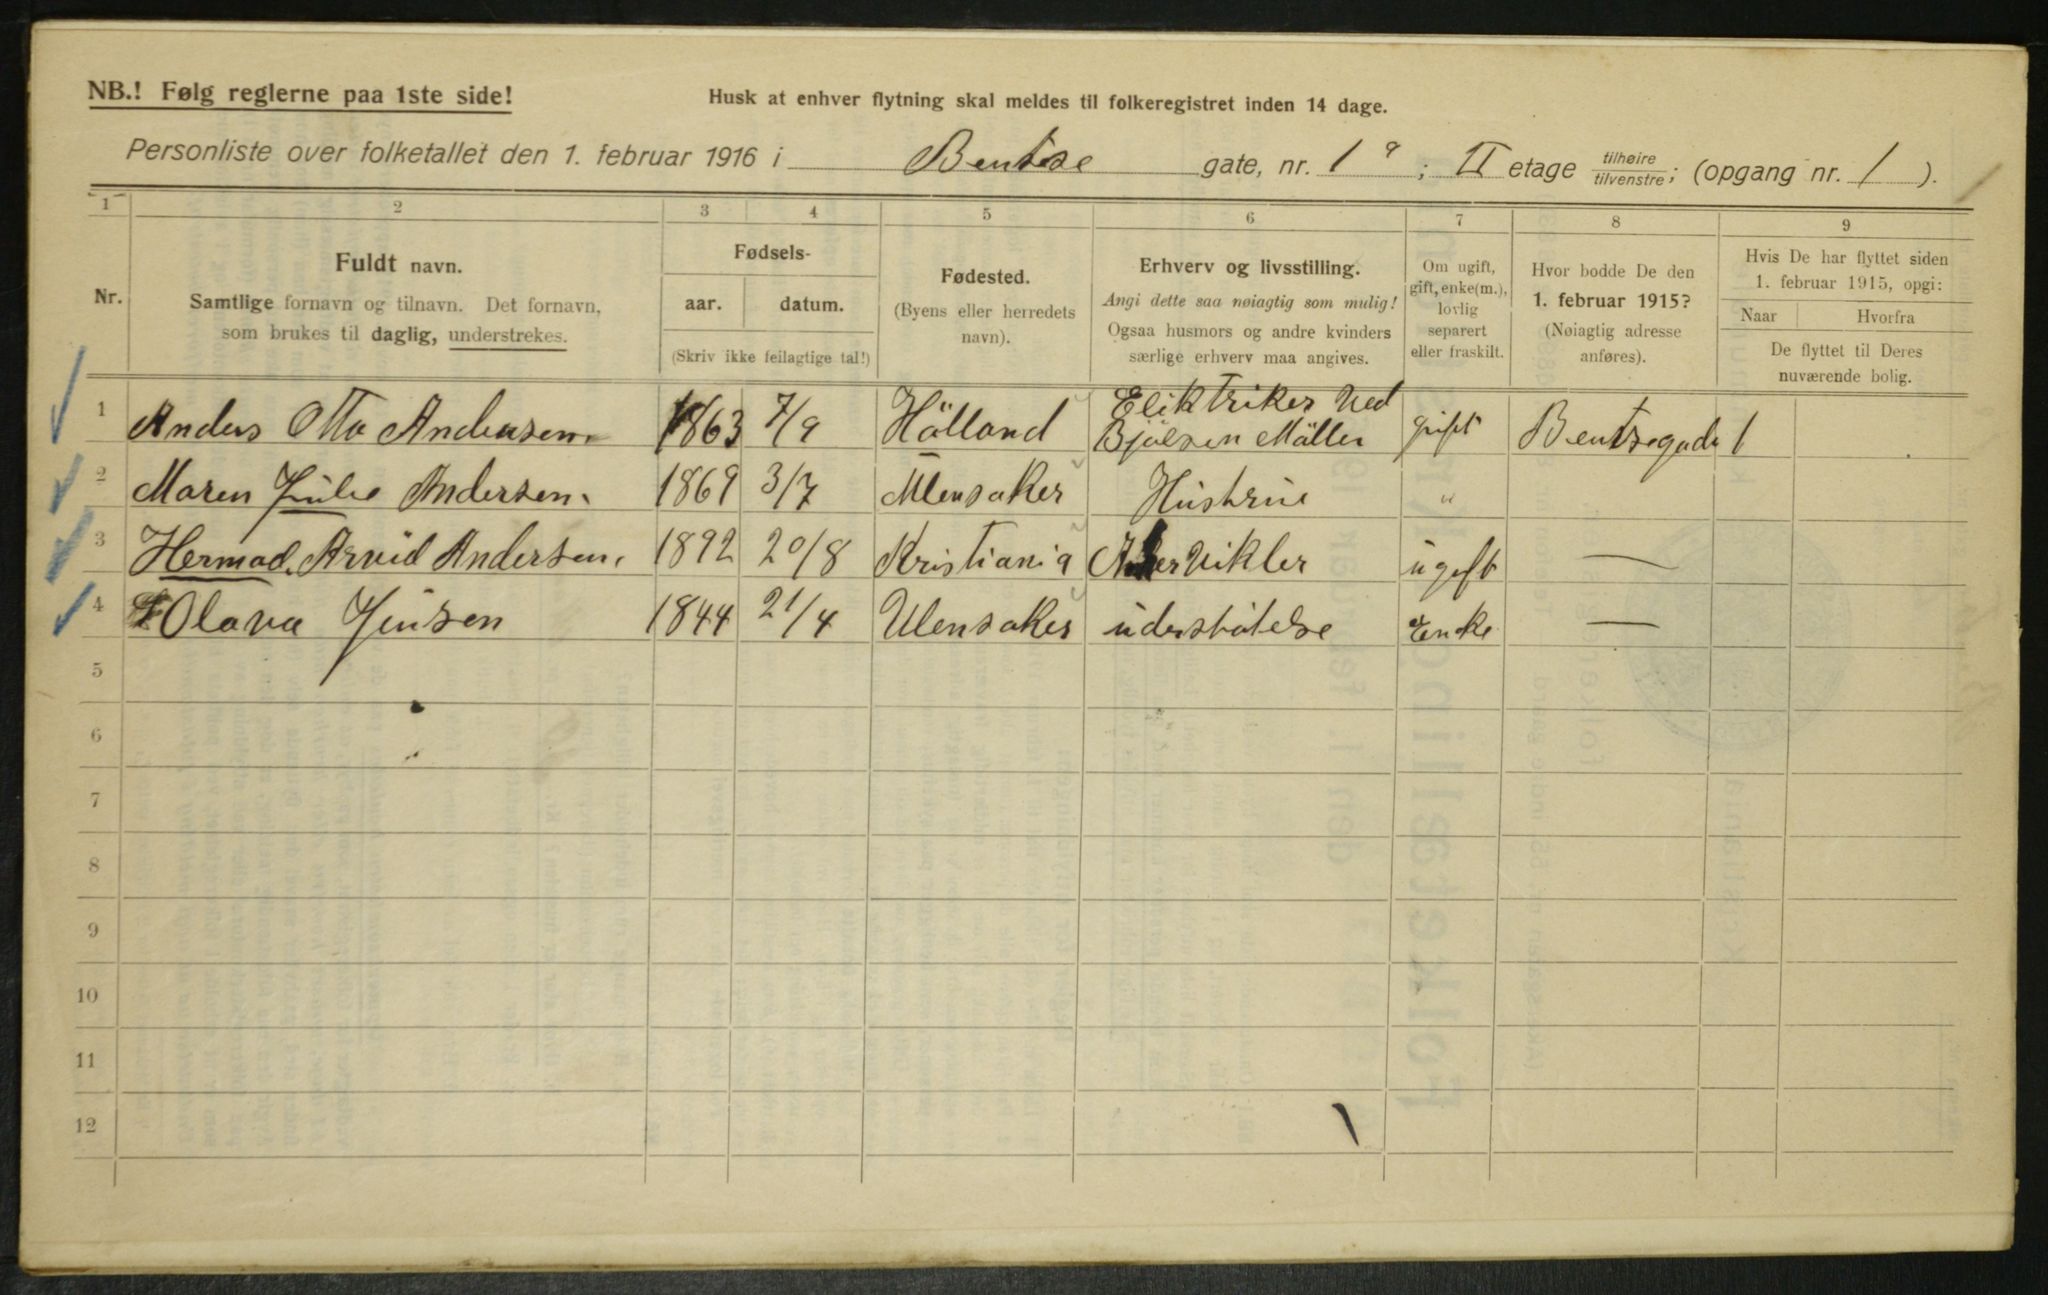 NB.! Følg reglerne paa 1ste side!
Husk at enhver flytning skal meldes til folkeregistret inden 14 dage.
Personliste over folketallet den 1. februar 1916 i Bentse gate, nr. 1 a ; II etage tilhøire/tilvenstre; (opgang nr. 1 ).
1 2 3 4 5 6 7 8 9
Nr.
Fuldt navn.
Samtlige fornavn og tilnavn. Det fornavn,
som brukes til daglig, understrekes.
Fødsels-
aar. datum.
(Skriv ikke feilagtige tal!)
Fødested.
(Byens eller herredets
navn).
Erhverv og livsstilling.
Angi dette saa nøiagtig som mulig!
Ogsaa husmors og andre kvinders
særlige erhverv maa angives.
Om ugift,
gift, enke(m.),
lovlig
separert
eller fraskilt.
Hvor bodde De den
1. februar 1915?
(Nøiagtig adresse
anføres).
Hvis De har flyttet siden
1. februar 1915, opgi:
Naar Hvorfra
De flyttet til Deres
nuværende bolig.
1 Anders Otto Andersen 1863 7/9 Hölland Eliktriker Ved Bjölsen Möller gift Bentsegade 1
2 Maren Julie Andersen. 1869 3/7 Ulensaker Hustrue "
3 Hermod. Arvid Andersen. 1892 20/8 Kristiania ugift —
4 Olava Jensen 1844 21/4 Ulensaker understötelse Enke —
5
6
7
8
9
10
11
12